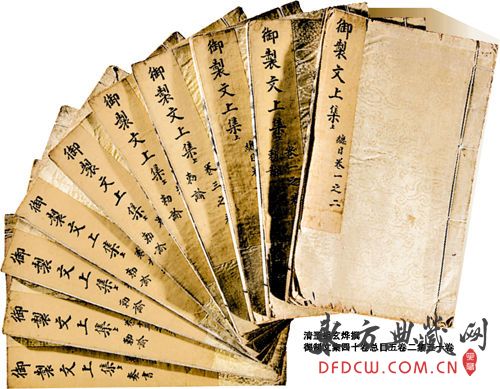 御製文上集 總目卷一之二
御製文上集
御製文上集
御製文上集 勅諭 卷三之
御製文上集 勅諭
御製文上集 勅諭
御製文上集 勅諭
御製文上集 勅諭
御製文上集 勅諭
御製文上集 奏書
清圣祖玄烨撰
御制文集四十卷总目五卷二集五十卷
东方典藏网
DFDCW.COM.CN